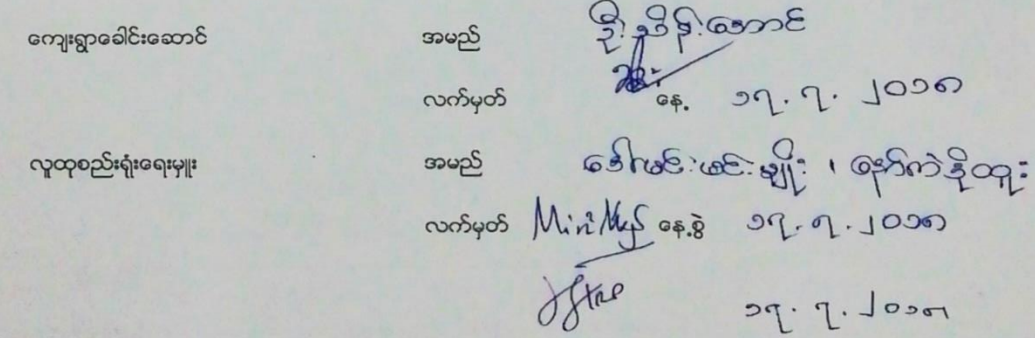 ကျေးရွာခေါင်းဆောင် အမည် ဦးသိန်းအောင်
လက်မှတ် နေ့ ၁၇.၇.၂၀၁၈
လူထုစည်းရုံးရေးမှူး အမည် ဒေါ်မင်းမင်းမျိုး ၊ နော်ကဲဒိုထူး
လက်မှတ် Min Myo နေ့စွဲ ၁၇.၇.၂၀၁၈
၁၇.၇.၂၀၁၈